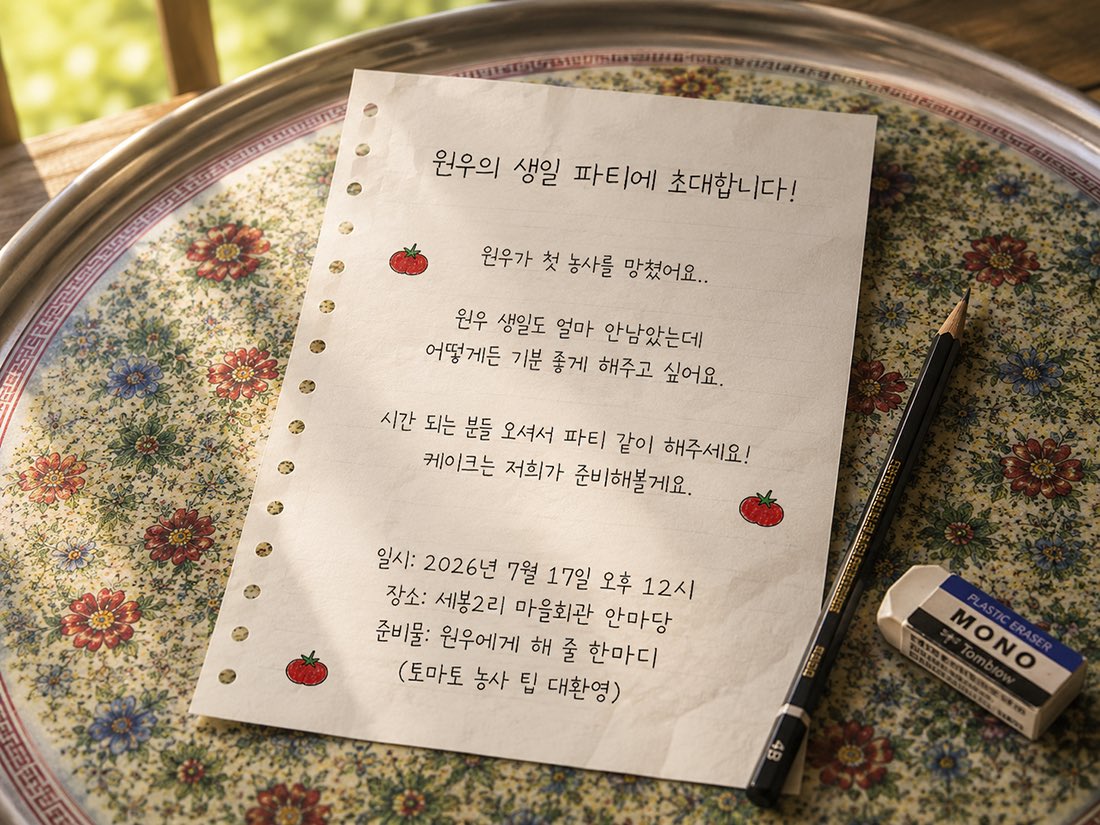 원우의 생일 파티에 초대합니다!
원우가 첫 농사를 망쳤어요..
원우 생일도 얼마 안남았는데
어떻게든 기분 좋게 해주고 싶어요.
시간 되는 분들 오셔서 파티 같이 해주세요!
케이크는 저희가 준비해볼게요.
일시: 2026년 7월 17일 오후 12시
장소: 세봉2리 마을회관 안마당
준비물: 원우에게 해 줄 한마디
(토마토 농사 팁 대환영)
PLASTIC ERASER
MONO
Tombow
4B